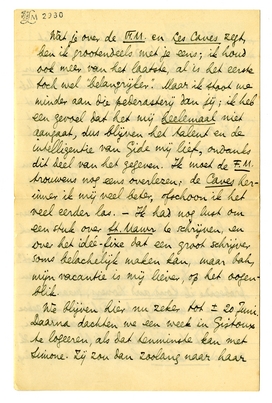 FM 2930
Wat je over de F.M. en Les Caves zegt,
ben ik grootendeels met je eens; ik houd
ook meer van het laatste, al is het eerste
toch wel 'belangrijker'. Maar ik staat we
minder aan die pederasterij dan jij; ik heb
een gevoel dat het mij heelemaal niet
aangaat, dus blijven het talent en de
intelligentie van Gide mij lief, ondanks
dit deel van het gegeven. Ik moet de F.M.
trouwens nog eens overlezen; de Caves her-
inner ik mij veel beter, ofschoon ik het
veel eerder las. — Ik had nog lust om
een stuk over St. Mawr te schrijven, en
over het idée-fixe dat een groot schrijver
soms belachelijk maken kan, maar bah,
mijn vacantie is mij liever, op het oogen-
blik.
We blijven hier nu zeker tot ± 20 Juni.
Daarna dachten we een week in Gistoux
te logeeren, als dat tenminste kan met
Simone. Zij zou dan zoolang naar haar